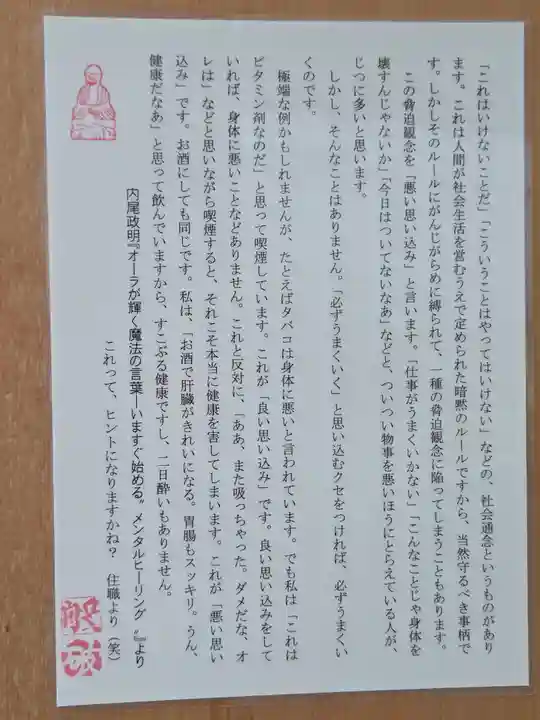 「これはいけないことだ」「こういうことはやってはいけない」などの、社会通念というものがあり
ます。これは人間が社会生活を営むうえで定められた暗黙のルールですから、当然守るべき事柄で
す。しかしそのルールにがんじがらめに縛られて、一種の脅迫観念に陥ってしまうこともあります。
この脅迫観念を「悪い思い込み」と言います。「仕事がうまくいかない」「こんなことじゃ身体を
壊すんじゃないか」「今日はついてないなあ」などと、ついつい物事を悪いほうにとらえている人が、
じつに多いと思います。
しかし、そんなことはありません。「必ずうまくいく」と思い込むクセをつければ、必ずうまくい
くのです。
極端な例かもしれませんが、たとえばタバコは身体に悪いと言われています。でも私は「これは
ビタミン剤なのだ」と思って喫煙しています。これが「良い思い込み」です。良い思い込みをして
いれば、身体に悪いことなどありません。これと反対に、「ああ、また吸っちゃった。ダメだな、オ
レは」などと思いながら喫煙すると、それこそ本当に健康を害してしまいます。これが「悪い思い
込み」です。お酒にしても同じです。私は、「お酒で肝臓がきれいになる。胃腸もスッキリ。うん、
健康だなあ」と思って飲んでいますから、すこぶる健康ですし、二日酔いもありません。
内尾政明『オーラが輝く魔法の言葉―いますぐ始める〝メンタルヒーリング〟』より
これって、ヒントになりますかね？　住職より（笑）